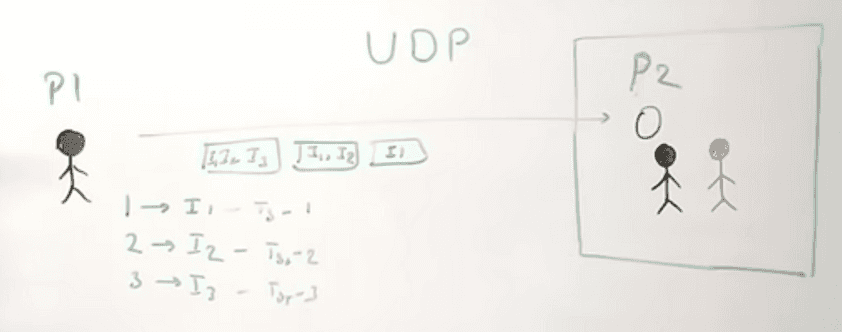 UDP
P1
P2
I1, I2, I3
I1, I2
I1
1 → I1 - Ts-1
2 → I2 - Ts-2
3 → I3 - Ts-3